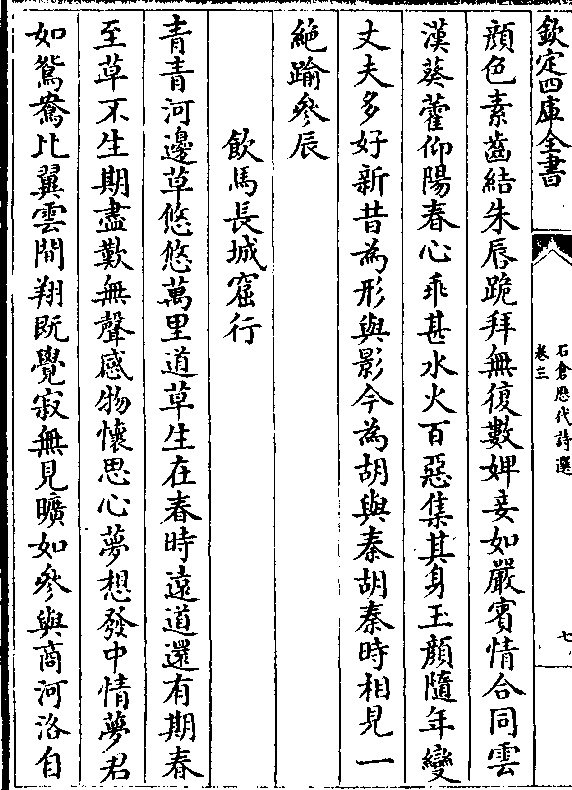 欽定四庫全書
石倉歷代詩選
卷三
七
顔色素齒結朱唇跪拜無復數婢妾如嚴賓情合同雲
漢葵藿仰陽春心乖甚水火百惡集其身玉顔隨年變
丈夫多好新昔為形與影今為胡與秦胡秦時相見一
絶踰參辰
飲馬長城窟行
青青河邊草悠悠萬里道草生在春時逺道還有期春
至草不生期盡歎無聲感物懷思心夢想發中情夢君
如鴛鴦比翼雲間翔既覺寂無見曠如參與商河洛自